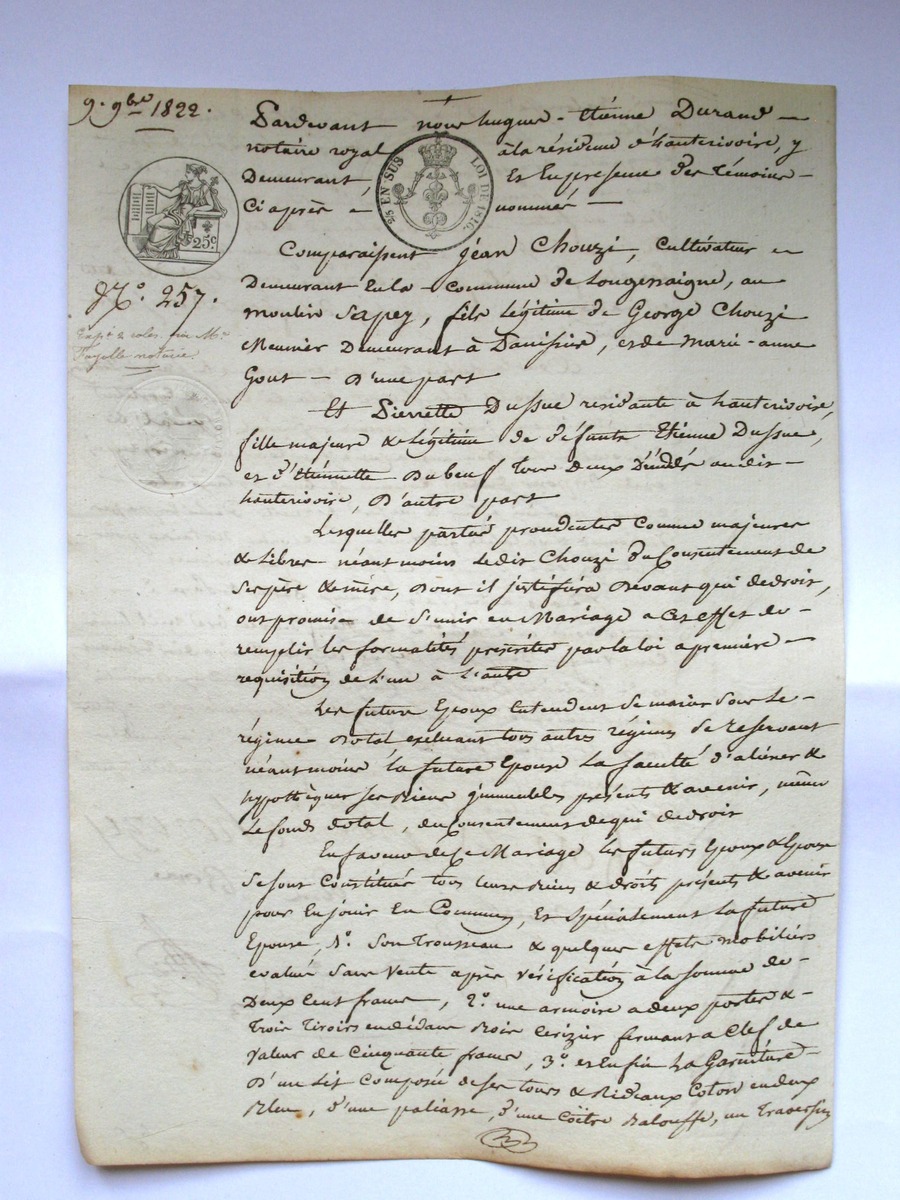 9. 9bre 1822.
Pardevant nous hugues-Etienne Durand
notaire royal à la résidence d'hauterivoire, y
Demeurant, Et En presence des témoins
Ci après nommés
EN SUS LOI DE 1816
25c
N.º 257.
notaire.
Comparaissent jéan Chouzi, Cultivateur
Demeurant En la Commune de Longessaigne, au
moulin Sapey, fils Légitime de George Chouzi
Meunier Demeurant à , et de marie-anne
Gout D'une part
Et Pierrette Dussue residante à hauterivoire,
fille majeure & Légitime de défunts Etienne Dussue,
et d'Etiennette Dubeuf tous Deux Décédés audit
hauterivoire, D'autre part
Lesquelles parties procedentes Comme majeures
& Libres néant moins Ledit Chouzi du Consentement de
Ses père & mère, Dont il justifira Devant qui de droit,
ont promis de S'unir en Mariage a Cet effet de
remplir les formalités préscrites par la loi a première
requisition de L'un à L'autre
Les future Epoux Entendent Se marier Sous Le
régime Dotal excluant tous autres régimes Se reservant
néant moins la future Epouse La faculté d'aliéner &
hypothèquer Ses Biens jmmeubles présents & avenir, même
Le fonds dotal, du Consentement de qui de droit
En faveur de Ce Mariage Les futurs Epoux & Epouse
Se sont Constitués tous leurs Biens & droits présents & avenir
pour En jouir En Commun, Et Spécialement La future
Epouse, 1º. Son Trousseau & quelques effets mobiliers
évalué Sans Vente après Vérification à la Somme de
Deux Cent francs, 2º. une armoire a deux portes &
Trois Tiroirs en dédans Bois Cerizier fermant a Clef de
Valeur de Cinquante francs, 3º. et Enfin La Garniture
D'un Lit Composée de Ses tours & Rideaux Coton en deux
Bleu, d'une paliasse, d'une Coëtre Balouffe, un Traversin